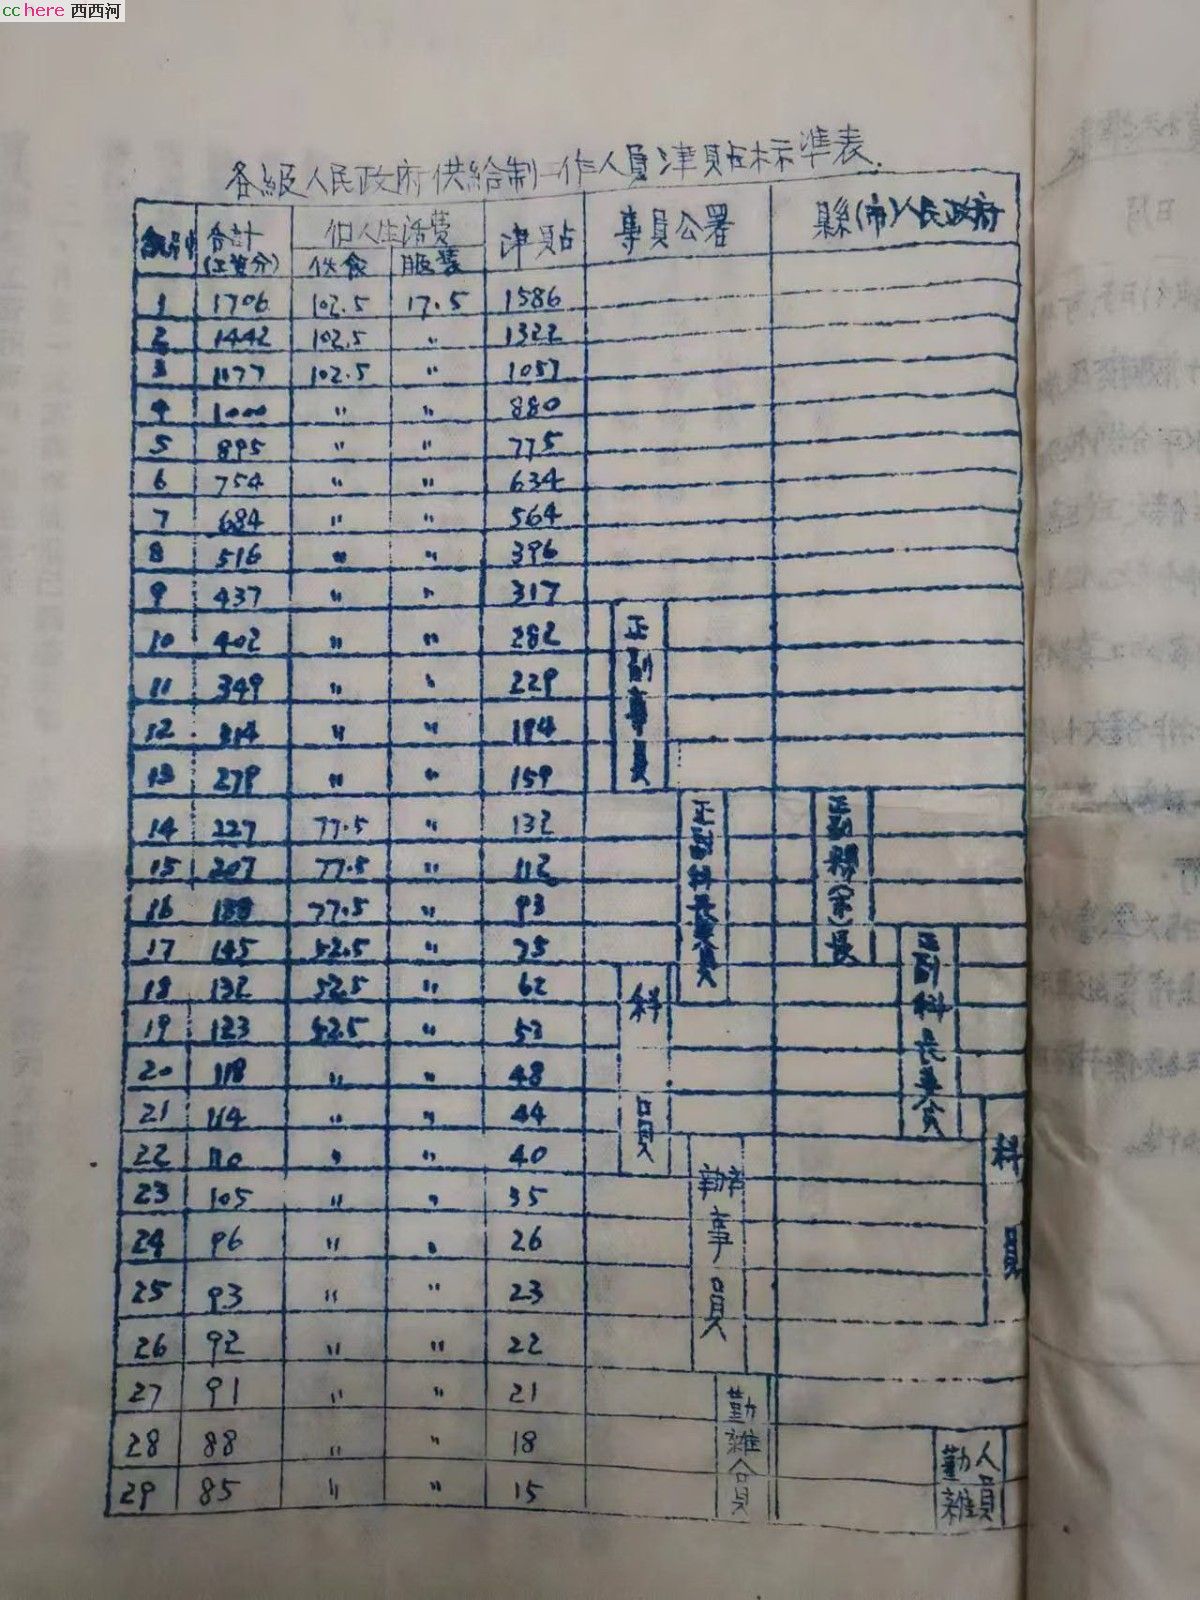 cchere 西西河
各級人民政府供給制工作人員津貼标準表.
級别 合計(工資分) 個人生活費 伙食 服裝 津貼 專員公署 縣(市)人民政府
1 1706 102.5 17.5 1586
2 1442 102.5 〃 1322
3 1177 102.5 〃 1057
4 1000 〃 〃 880
5 895 〃 〃 775
6 754 〃 〃 634
7 684 〃 〃 564
8 516 〃 〃 396
9 437 〃 〃 317
10 402 〃 〃 282
11 349 〃 〃 229
12 314 〃 〃 194
13 279 〃 〃 159
14 227 77.5 〃 132
15 207 77.5 〃 112
16 188 77.5 〃 93
17 145 52.5 〃 75
18 132 52.5 〃 62
19 123 52.5 〃 53
20 118 〃 〃 48
21 114 〃 〃 44
22 110 〃 〃 40
23 105 〃 〃 35
24 96 〃 〃 26
25 93 〃 〃 23
26 92 〃 〃 22
27 91 〃 〃 21
28 88 〃 〃 18
29 85 〃 〃 15
正副專員
正副科長
科員
辦事員
勤雜
正副縣長
正副科長
科員
勤雜人員